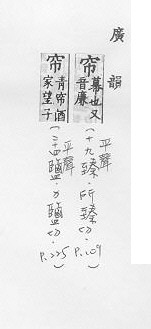 廣韻
帘 幕也又音廉
平聲
(十九臻.所臻切.P.109)
帘 青帘酒家望子
平聲
(二十四鹽.力鹽切.P.225)